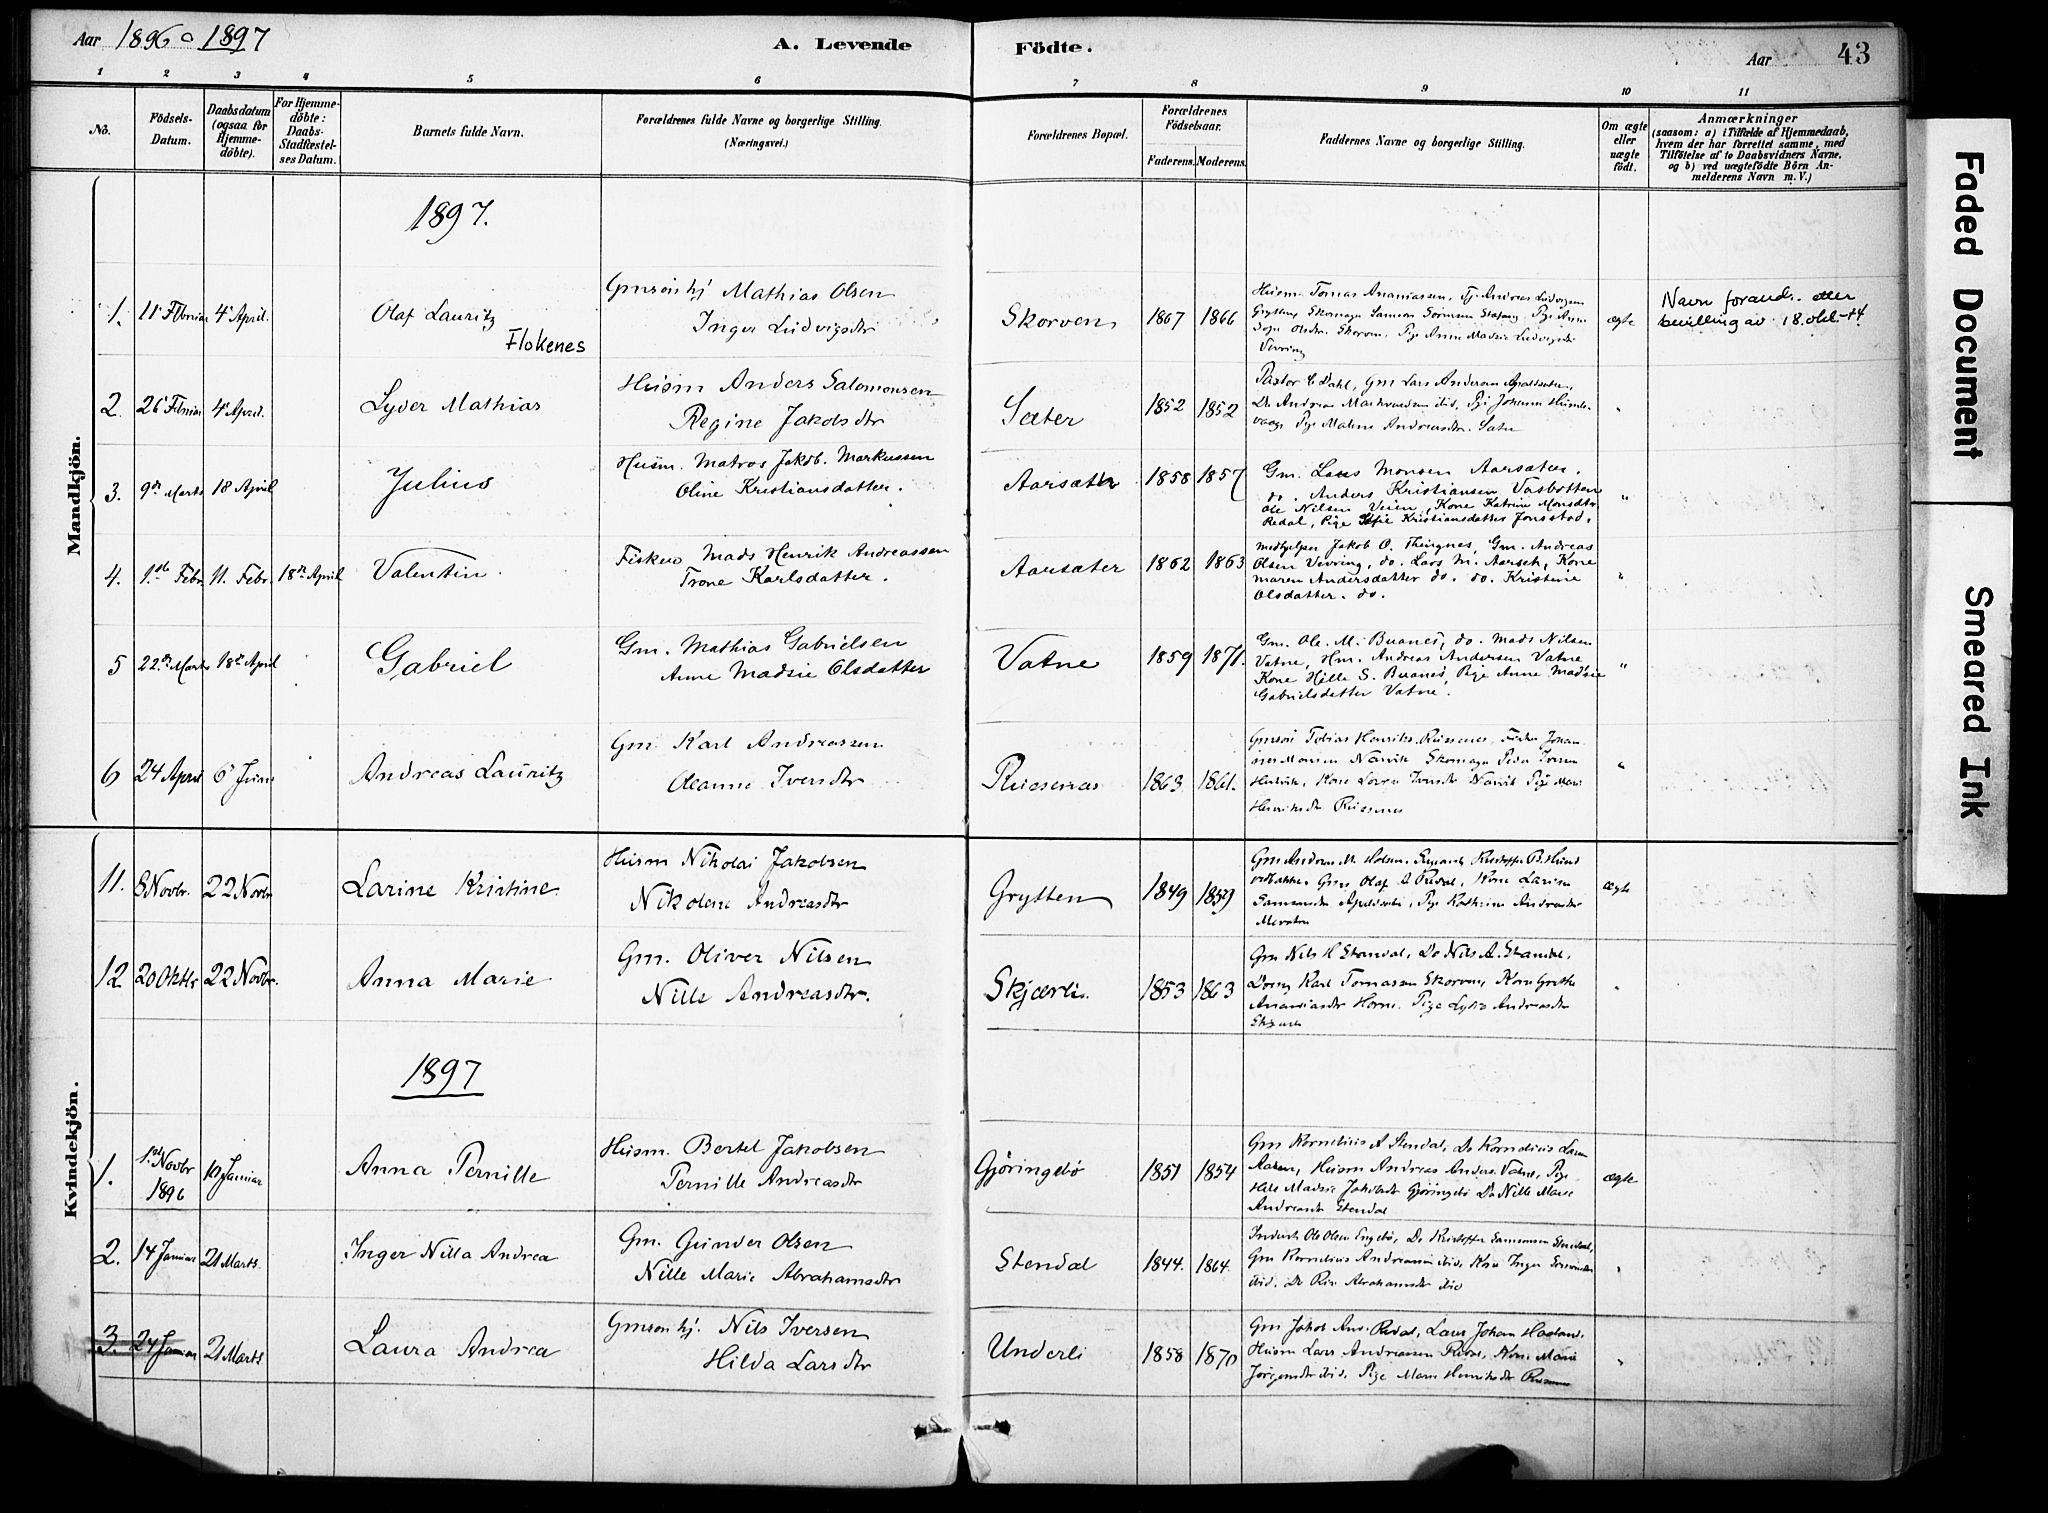 Aar 1896 o 1897
A. Levende
Födte.
Aar
43
1 2 3 4 5 6 7 8 9 10 11
No.
Födsels-Datum.
Daabsdatum (ogsaa for Hjemme-döbte).
For Hjemme-döbte: Daabs-Stadfæstel-ses Datum.
Barnets fulde Navn.
Forældrenes fulde Navne og borgerlige Stilling.
(Næringsvei.)
Forældrenes Bopæl.
Forældrenes Födselsaar.
Faderens. Moderens.
Faddernes Navne og borgerlige Stilling.
Om ægte eller uægte födt.
Anmærkninger
(saasom: a) i Tilfælde af Hjemmedaab,
hvem der har forrettet samme, med
Tilföielse af to Daabsvidners Navne.
og b) ved uægtefödte Börn An-
melderens Navn m. V.)
Mandkjön.
1897.
1. 11 Februar 4 April. Olaf Lauritz Flokenes
Gmsön hj Mathias Olsen
Inger Ludvigsdtr
Skorven 1867 1866
Husm. Tomas Ananiassen, Tj. Andreas Ludvigsen
ægte
Navn forandr. etter
bevilling av 18. okt. 44.
2. 26 Februar 4 April. Lyder Mathias
Husm Anders Salomonsen
Regine Jakobsdtr
Sæter 1852 1852
Pastor C Dahl, Gm Lars Andersen
Pige Malene Andreasdtr. Sæter
"
3. 9de Marts 18 April Julius
Husm. Matros Jakob. Markussen
Oline Kristiansdatter.
Aarsæter 1858 1857
Gm. Lars Monsen Aarsæter.
do. Anders Kristiansen Vasbotten
Ole Nilsen Veien, Kone Katrine Monsdtr
Redal, Pige Kristiansdatter Jonsstad.
"
4. 1ste Febr 11. Febr. 18de April Valentin.
Fisker Mads Henrik Andreassen
Trone Karlsdatter.
Aarsæter 1862 1863
Medhjelper Jakob O. Thingnes, Gm. Andreas
Olsen Vevring, do. Lars M. Aarseth, Kone
Maren Andersdatter do. do. Kristine
Olsdatter. do.
"
5 22de Marts 18de April Gabriel
Gm. Mathias Gabrielsen
Anne Madsie Olsdatter
Vatne 1859 1871.
Gm. Ole. M. Buanes, do. Mads Nilsen
Vatne, Hm. Andreas Andersen Vatne
Kone Hille S. Buanes, Pige Anne Madsie
Gabrielsdatter Vatne.
"
6 24 April 6 Juni Andreas Lauritz
Gm. Karl Andreassen
Oleanne Iversdtr
Riisenæs 1863 1861.
Gmsön Tobias Henriks. Risenes. Fisker Johan-
"
Kvindekjön.
11. 8 Novbr. 22 Novbr Larine Kristine
Husm Nikolai Jakobsen
Nikoline Andreasdtr
Grytten 1849 1859
ægte
12 20 Oktbr 22 Novbr. Anna Marie
Gm. Oliver Nilsen
Nille Andreasdtr.
Skjærli. 1853 1863
Gm Nils H Stendal, Do Nils A. Stendal,
Karl Tomassen Skorven, Kone Grethe
Ananiasdtr Horne. Pige Lydia Andreasdtr
"
1897
1. 1ste Novbr 1896 10 Januar Anna Pernille
Husm. Bertel Jakobsen
Pernille Andreasdtr
Gjöringebö 1851 1854
Gm Kornelius A Stendal, Do Kornelius Larsen
Aasen, Husm Andreas Anders. Vatne, Pige
Madsie Jakobsdtr Gjöringebö Do Nille Marie
Andreasdt Stendal
ægte
2. 14 Januar 21 Marts. Inger Nilla Andrea
Gm. Gunder Olsen
Nille Marie Abrahamsdtr
Stendal 1844. 1864.
Inderst Ole Olsen Engebö, Do Kristoffer Samsonsen Stendal,
Gm Kornelius Andreassen ibid, Kone Inger
ibid. Do Abrahamsdtr ibid
"
3. 24 Januar 21 Marts Laura Andrea
Gmsön hj. Nils Iversen
Hilda Larsdtr
Underli 1858 1870
Gm Jakob And. Redal, Johan
Husm Lars Andreassen Redal, Kone Marie
Jörgensdtr ibid. Pige Maren Henriksdtr
"
Faded Document
Smeared Ink